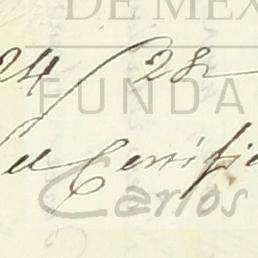 DE MÉX
24/28
FUNDA
el Certific
Carlos